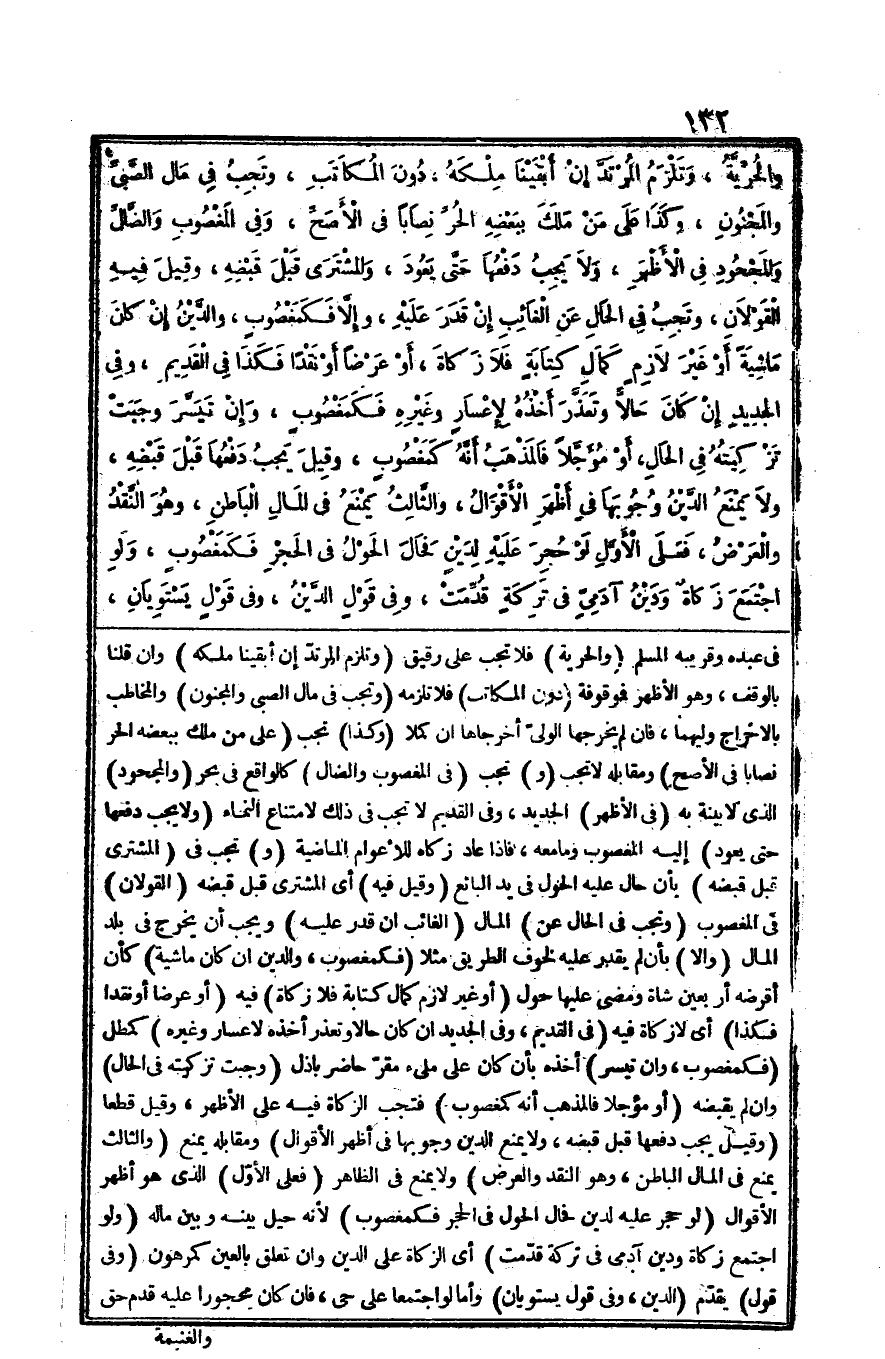 ١٣٢
وَالْحُرِّيَّةُ ، وَتَلْزَمُ الْمُرْتَدَّ إِنْ أَبْقَيْنَا مِلْكَهُ ، دُونَ الْمُكَاتَبِ ، وَتَجِبُ فِي مَالِ الصَّبِيِّ
وَالْمَجْنُونِ ، وَكَذَا عَلَى مَنْ مَلَكَ بِبَعْضِهِ الْحُرِّ نِصَاباً فِى الْأَصَحِّ ، وَفِي الْمَغْصُوبِ وَالضَّالِّ
وَالْمَجْحُودِ فِي الْأَظْهَرِ ، وَلَا يَجِبُ دَفْعُهَا حَتَّى يَعُودَ ، وَالْمُشْتَرَى قَبْلَ قَبْضِهِ ، وَقِيلَ فِيهِ
الْقَوْلَانِ ، وَتَجِبُ فِي الْحَالِ عَنِ الْغَائِبِ إِنْ قَدَرَ عَلَيْهِ ، وَإِلَّا فَكَمَغْصُوبٍ ، وَالدَّيْنُ إِنْ كَانَ
مَاشِيَةً أَوْ غَيْرَ لَازِمٍ كَمَالِ كِتَابَةٍ فَلَا زَكَاةَ ، أَوْ عَرْضاً أَوْ نَقْدًا فَكَذَا فِي الْقَدِيمِ ، وَفِي
الْجَدِيدِ إِنْ كَانَ حَالًّا وَتَعَذَّرَ أَخْذُهُ لِإِعْسَارٍ وَغَيْرِهِ فَكَمَغْصُوبٍ ، وَإِنْ تَيَسَّرَ وَجَبَتْ
تَزْكِيَتُهُ فِي الْحَالِ، أَوْ مُؤَجَّلاً فَالْمَذْهَبُ أَنَّهُ كَمَغْصُوبٍ ، وَقِيلَ يَجِبُ دَفْعُهَا قَبْلَ قَبْضِهِ ،
وَلَا يَمْنَعُ الدَّيْنُ وُجُوبَهَا فِي أَظْهَرِ الْأَقْوَالُ ، وَالثَّالِثُ يَمْنَعُ فِي الْمَالِ الْبَاطِنِ ، وَهُوَ النَّقْدُ
وَالْعَرْضُ ، فَعَلَى الْأَوَّلِ لَوْ حُجِرَ عَلَيْهِ لِدَيْنٍ فَحَالَ الْحَوْلُ فِى الْحَجْرِ فَكَمَغْصُوبٍ ، وَلَوِ
اجْتَمَعَ زَكَاةٌ وَدَيْنُ آدَمِيٍّ فِى تَرِكَةٍ قُدِّمَتْ ، وَفِى قَوْلٍ الدَّيْنُ ، وَفِى قَوْلٍ يَسْتَوِيَانِ ،
فى عبده وقريبه المسلم (والحرية) فلا تجب على رقيق (وتلزم المرتد إن أبقينا ملكه) وان قلنا
بالوقف ، وهو الأظهر فموقوفة (دون المكاتب) فلا تلزمه (وتجب فى مال الصبى والمجنون) والمخاطب
بالاخراج وليهما ، فان لم يخرجها الولىّ أخرجاها ان كملا (وكذا) تجب (على من ملك ببعضه الحر
نصابا فى الأصح) ومقابله لاتجب (و) تجب (فى المغصوب والضال) كالواقع فى بحر (والمجحود)
الذى لا بينة به (فى الأظهر) الجديد ، وفى القديم لا تجب فى ذلك لامتناع النماء (ولا يجب دفعها
حتى يعود) إليه المغصوب ومامعه ، فاذا عاد زكاه للأعوام الماضية (و) تجب فى (المشترى
قبل قبضه) بأن حال عليه الحول فى يد البائع (وقيل فيه) أى المشترى قبل قبضه (القولان)
فى المغصوب (وتجب فى الحال عن) المال (الغائب ان قدر عليه) ويجب أن يخرج فى بلد
المال (والا) بأن لم يقدر عليه لخوف الطريق مثلا (فكمغصوب ، والدين ان كان ماشية) كأن
أقرضه أربعين شاة ومضى عليها حول (أو غير لازم كمال كتابة فلا زكاة) فيه (أو عرضا أو نقدا
فكذا) أى لا زكاة فيه (فى القديم ، وفى الجديد ان كان حالا وتعذر أخذه لاعسار وغيره) كمطل
(فكمغصوب ، وان تيسر) أخذه بأن كان على ملىء مقرّ حاضر باذل (وجبت تزكيته فى الحال)
وان لم يقبضه (أو مؤجلا فالمذهب أنه كمغصوب) فتجب الزكاة فيه على الأظهر ، وقيل قطعا
(وقيل يجب دفعها قبل قبضه ، ولا يمنع الدين وجوبها فى أظهر الأقوال) ومقابله يمنع (والثالث
يمنع فى المال الباطن ، وهو النقد والعرض) ولا يمنع فى الظاهر (فعلى الأوّل) الذى هو أظهر
الأقوال (لو حجر عليه لدين فحال الحول فى الحجر فكمغصوب) لأنه حيل بينه وبين ماله (ولو
اجتمع زكاة ودين آدمى فى تركة قدّمت) أى الزكاة على الدين وان تعلق بالعين كمرهون (وفى
قول) يقدّم (الدين ، وفى قول يستويان) وأما لو اجتمعا على حى ، فان كان محجورا عليه قدم حق
والغنيمة